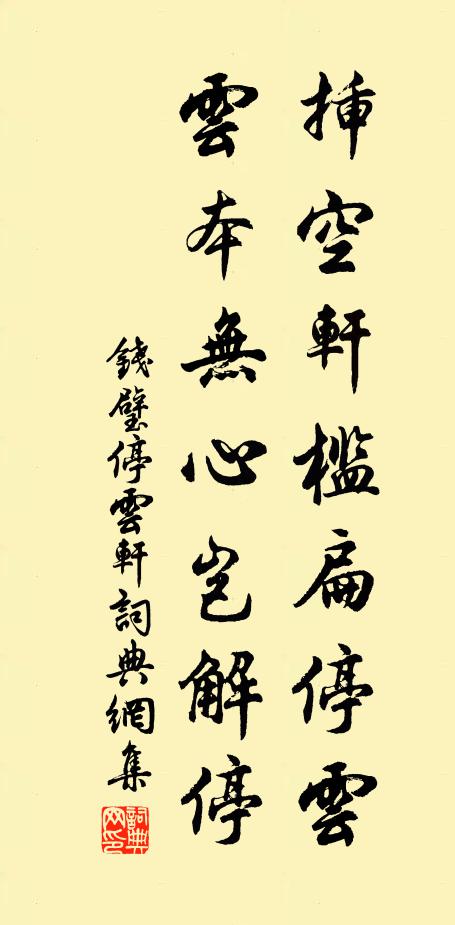 揷空軒檻扁停雲
雲本無心豈解停
錢壁停雲軒詞典網集
詞典网印